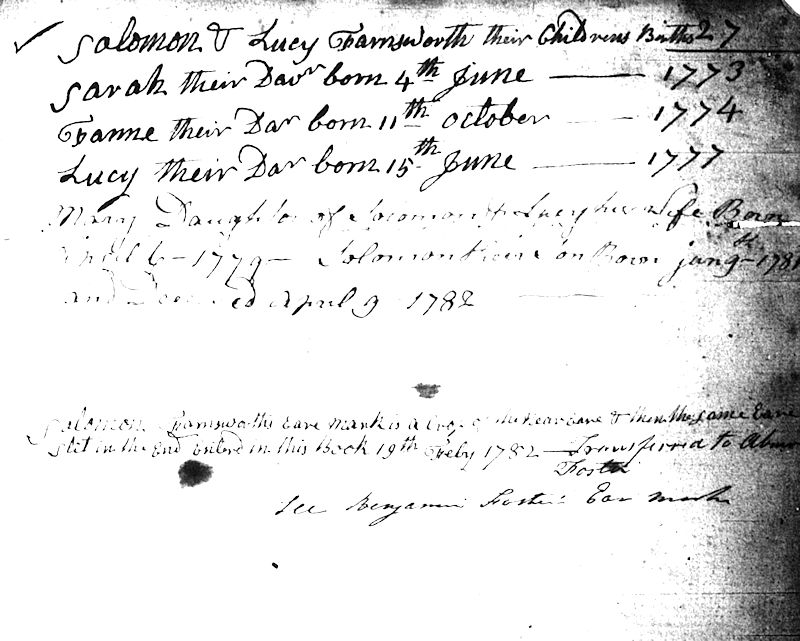 Solomon & Lucy Farnsworth their Childrens Births 27
Sarah their Davr born 4th June — 1773
Fanne their Dar born 11th october — 1774
Lucy their Dar born 15th June — 1777
Mary Daughter of Solomon & Lucy his Wife Born
Aprill 6 - 1779 - Solomon their Son Born jan 9th - 1781
and Deceased April 9 1782 —
Solomon Farnsworths Eare mark is a Crop of the Near Eare & then the same Eare
slit in the End Entred in this Book 19th Feby 1782 — Transferred to
Foster
See Benjamin Foster Ear mark